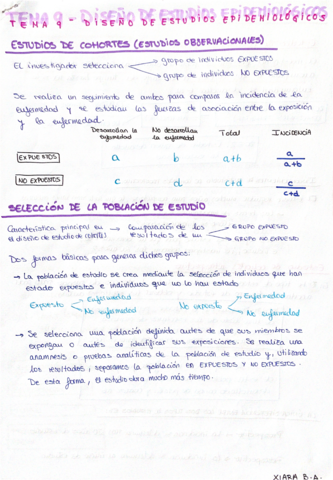 TEMA 9 - DISEÑO DE ESTUDIOS EPIDEMIOLÓGICOS
ESTUDIOS DE COHORTES (ESTUDIOS OBSERVACIONALES)
El investigador selecciona → grupo de individuos EXPUESTOS
→ grupo de individuos NO EXPUESTOS
Se realiza un seguimiento de ambos para comparar la incidencia de la
enfermedad y se estudian las fuerzas de asociación entre la exposición
y la enfermedad.
Desarrollan la enfermedad No desarrollan la enfermedad Total INCIDENCIA
EXPUESTOS a b a+b a/a+b
NO EXPUESTOS c d c+d c/c+d
SELECCIÓN DE LA POBLACIÓN DE ESTUDIO
Característica principal en el diseño de estudio de cohortes → Comparación de los resultados de un → GRUPO EXPUESTO
→ GRUPO NO EXPUESTO
Dos formas básicas para generar dichos grupos:
→ La población de estudio se crea mediante la selección de individuos que han
estado expuestos e individuos que no lo han estado
Expuesto → Enfermedad No expuesto → Enfermedad
→ No enfermedad → No enfermedad
→ Se selecciona una población definida antes de que sus miembros se
expongan o antes de identificar sus exposiciones. Se realiza una
anamnesis o pruebas analíticas de la población de estudio y, utilizando
los resultados, separamos la población en EXPUESTOS Y NO EXPUESTOS.
De esta forma, el estudio dura mucho más tiempo.
XIARA B.A.